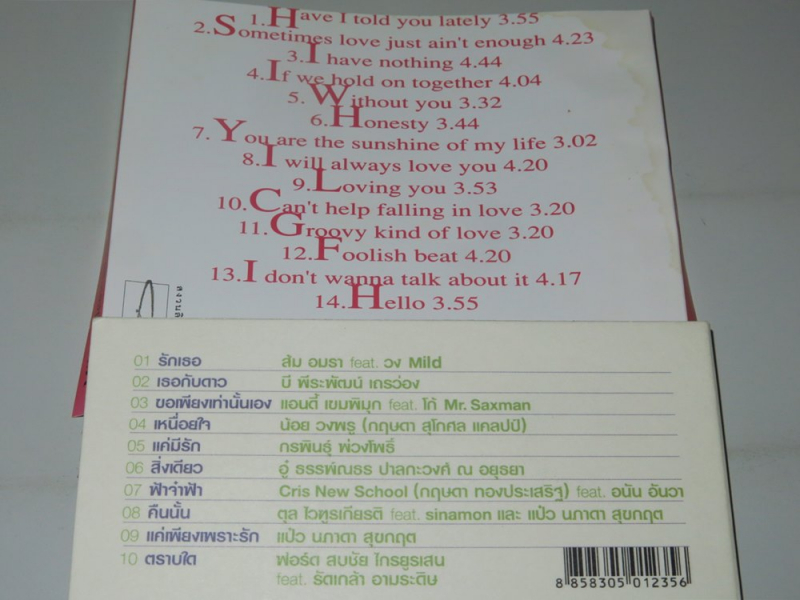 1.Have I told you lately 3.55
2.Sometimes love just ain't enough 4.23
3.I have nothing 4.44
4.If we hold on together 4.04
5.Without you 3.32
6.Honesty 3.44
7.You are the sunshine of my life 3.02
8.I will always love you 4.20
9.Loving you 3.53
10.Can't help falling in love 3.20
11.Groovy kind of love 3.20
12.Foolish beat 4.20
13.I don't wanna talk about it 4.17
14.Hello 3.55
01 รักเธอ ส้ม อมรา feat. วง Mild
02 เธอกับดาว บี พีระพัฒน์ เถรว่อง
03 ขอเพียงเท่านั้นเอง แอนดี้ เขมพิมุก feat. โก้ Mr. Saxman
04 เหนื่อยใจ น้อย วงพรู (กฤษดา สุโกศล แคลปป์)
05 แค่มีรัก กรพินธุ์ พ่วงโพธิ์
06 สิ่งเดียว อู๋ ธรรพ์ณธร ปาลกะวงศ์ ณ อยุธยา
07 ฟ้าจ๋าฟ้า Cris New School (กฤษดา ทองประเสริฐ) feat. อนัน อันวา
08 คืนนั้น ตุล ไวฑูรเกียรติ feat. sinamon และ แป๋ว นภาดา สุขกฤต
09 แค่เพียงเพราะรัก แป๋ว นภาดา สุขกฤต
10 ตราบใด ฟอร์ด สบชัย ไกรยูรเสน
feat. รัดเกล้า อามระดิษ
8 858305 012356